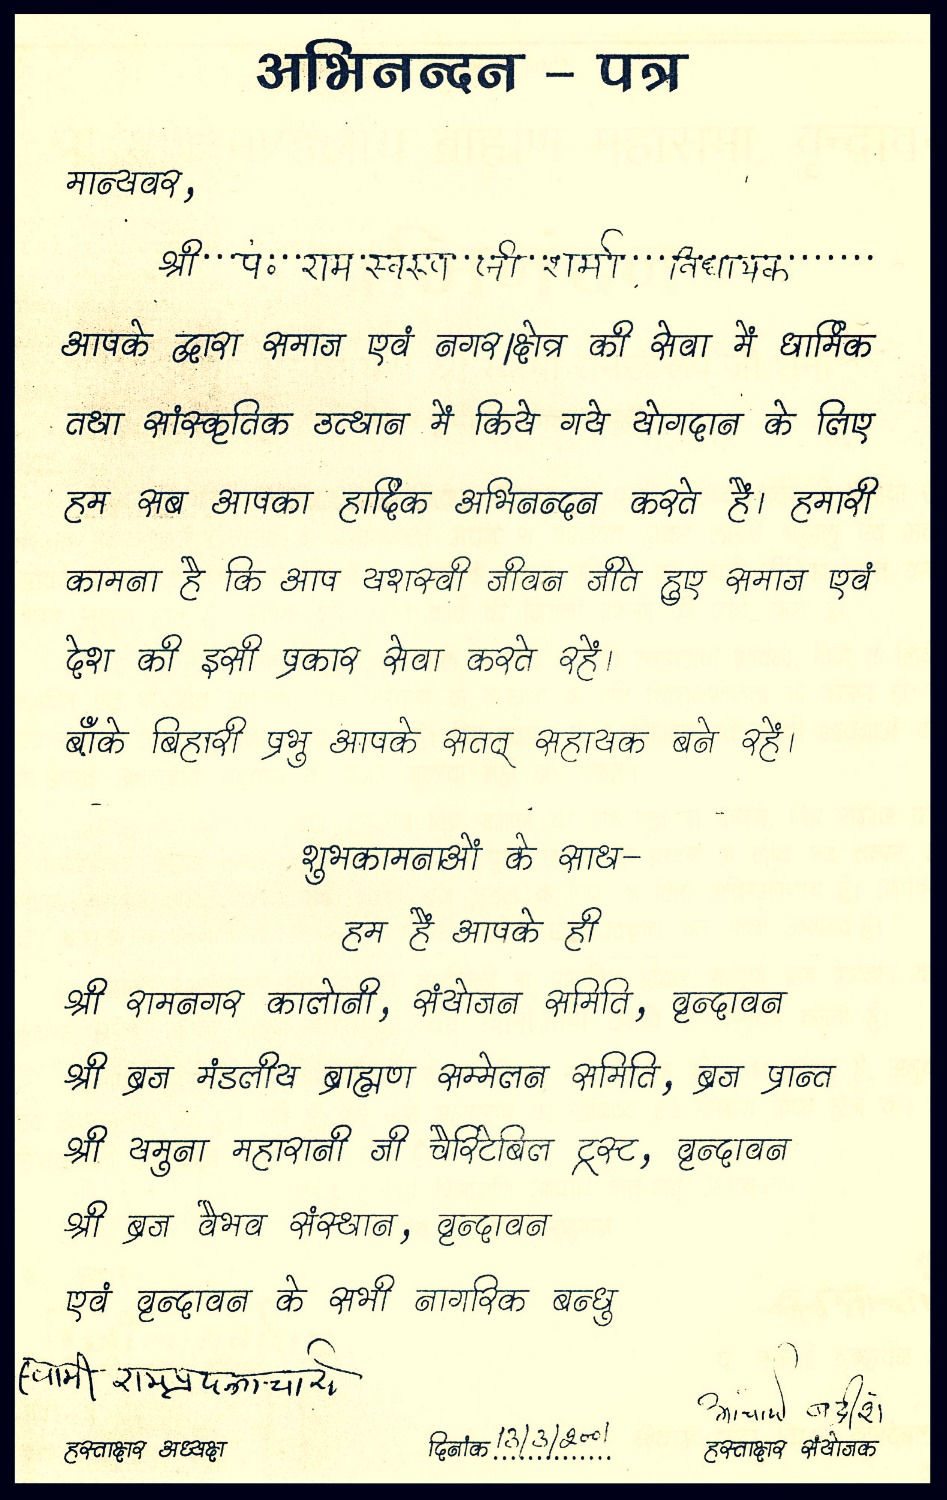 अभिनन्दन - पत्र
मान्यवर,
श्री पं० राम स्वरूप जी शर्मा विधायक
आपके द्वारा समाज एवं नगर/क्षेत्र की सेवा में धार्मिक
तथा सांस्कृतिक उत्थान में किये गये योगदान के लिए
हम सब आपका हार्दिक अभिनन्दन करते हैं। हमारी
कामना है कि आप यशस्वी जीवन जीते हुए समाज एवं
देश की इसी प्रकार सेवा करते रहें।
बाँके बिहारी प्रभु आपके सतत् सहायक बने रहें।
शुभकामनाओं के साथ-
हम हैं आपके ही
श्री रामनगर कालोनी, संयोजन समिति, वृन्दावन
श्री ब्रज मंडलीय ब्राह्मण सम्मेलन समिति, ब्रज प्रान्त
श्री यमुना महारानी जी चैरिटेबिल ट्रस्ट, वृन्दावन
श्री ब्रज वैभव संस्थान, वृन्दावन
एवं वृन्दावन के सभी नागरिक बन्धु
स्वामी
आचार्य
हस्ताक्षर अध्यक्ष दिनांक 13/3/2001 हस्ताक्षर संयोजक